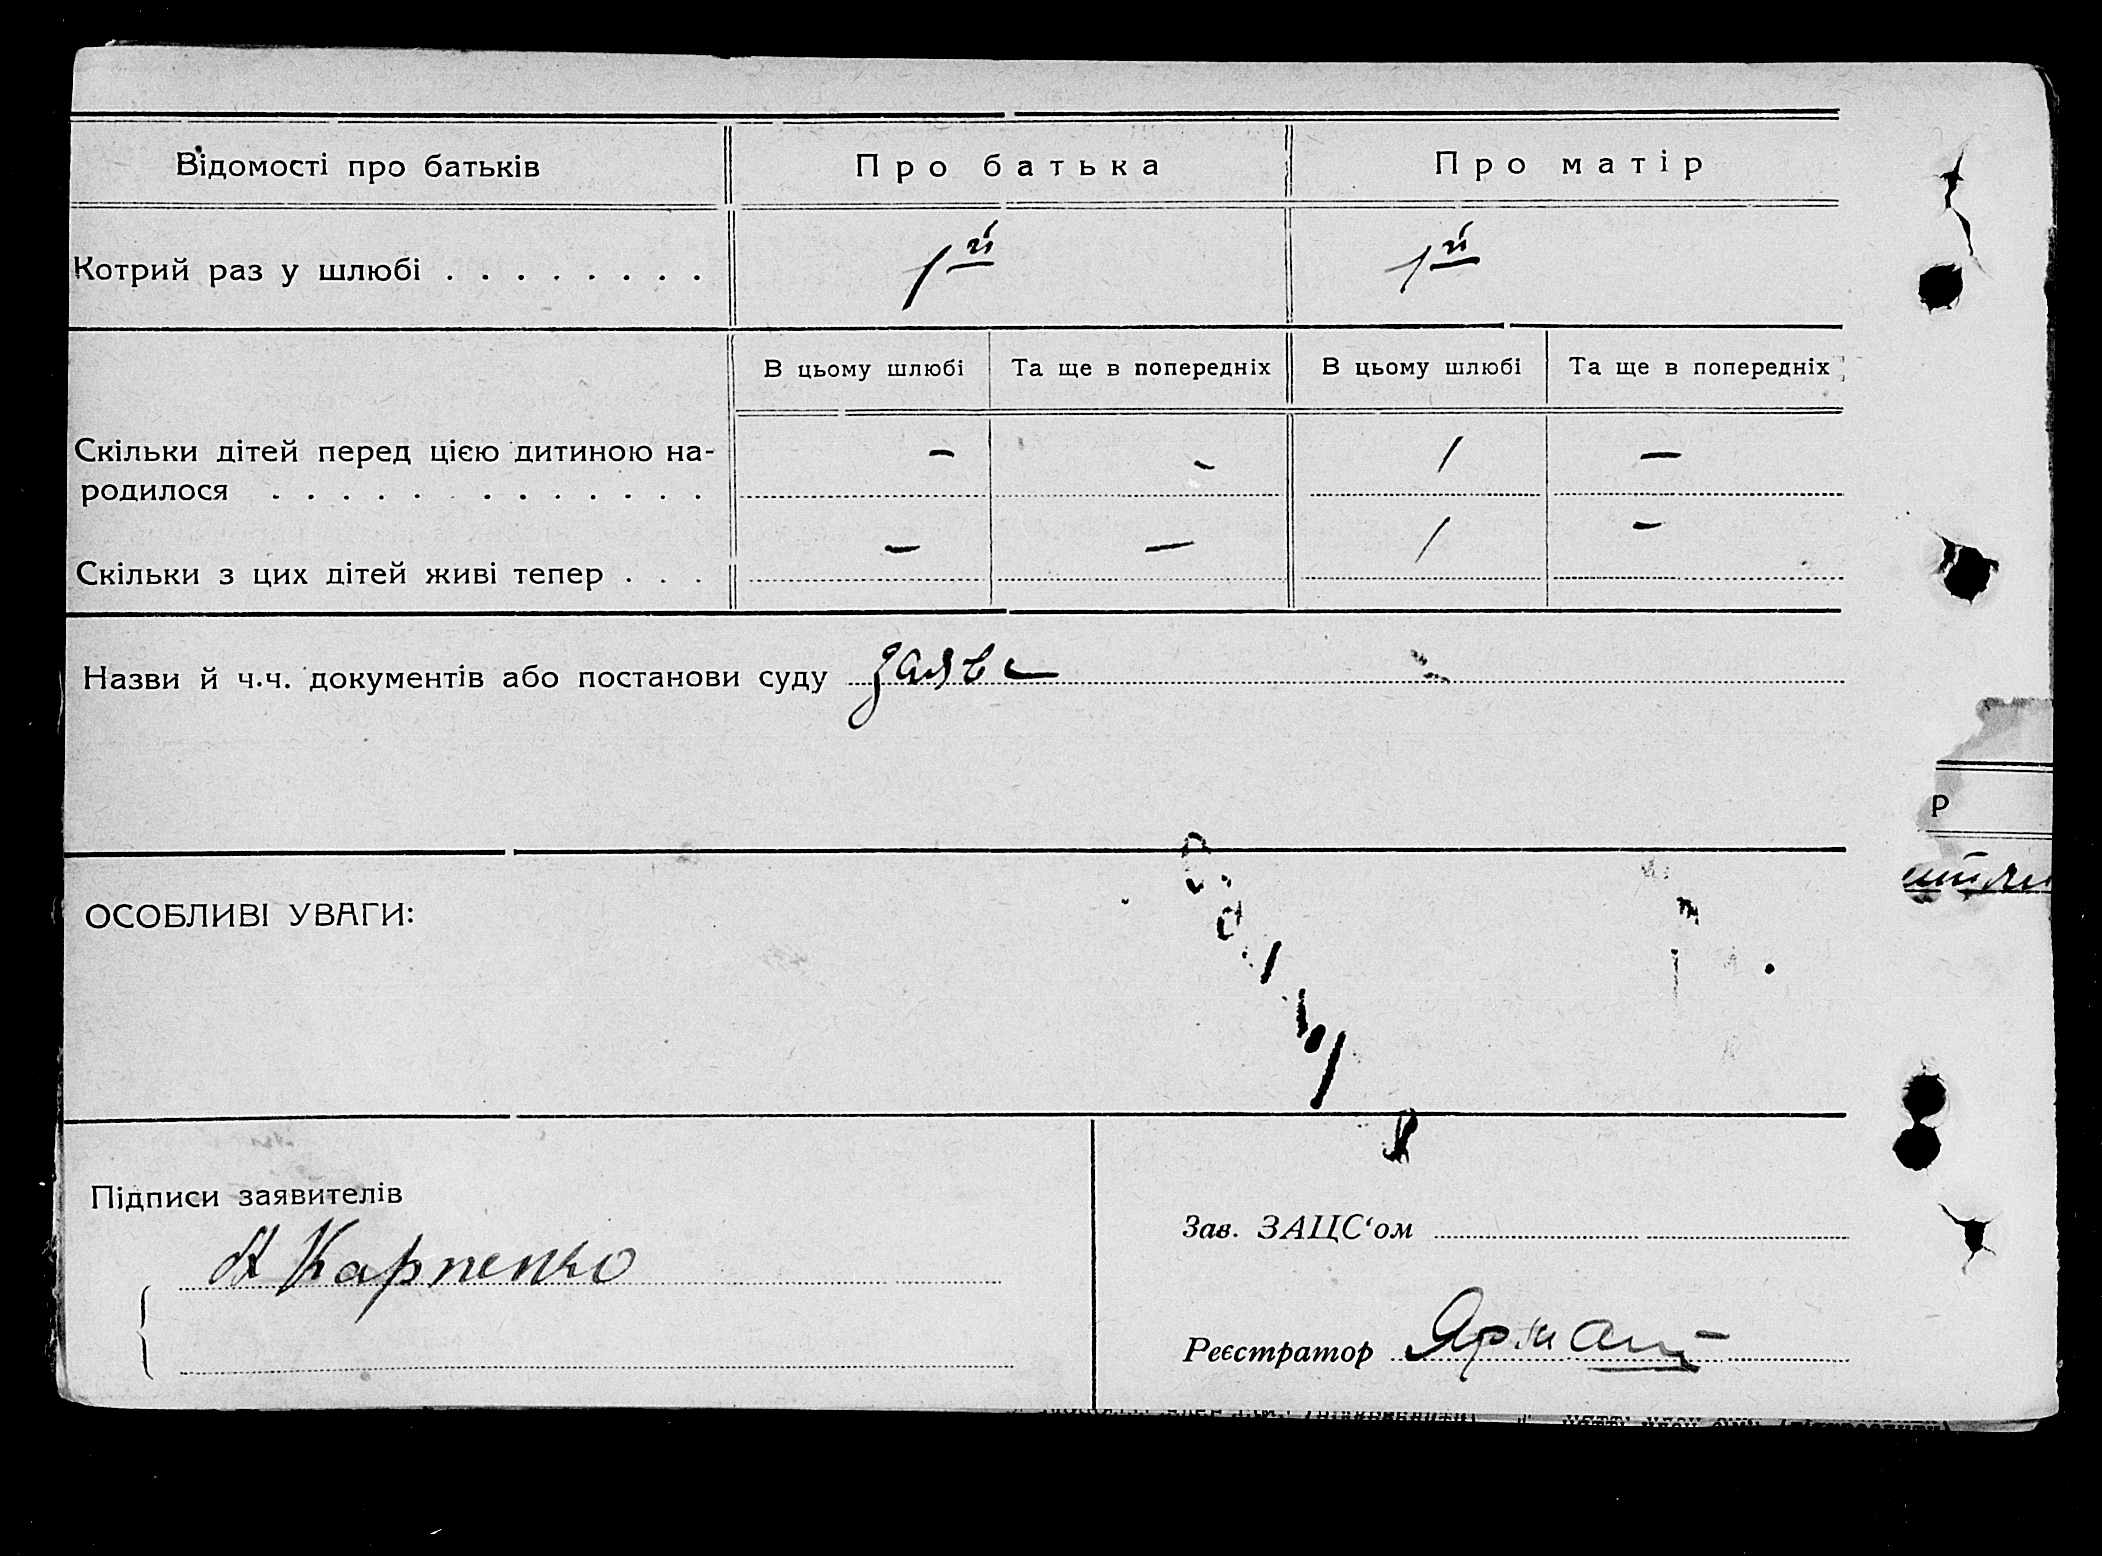 Відомості про батьків Про батька Про матір
Котрий раз у шлюбі . . . . . . . . 1й 1й
В цьому шлюбі Та ще в попередніх В цьому шлюбі Та ще в попередніх
Скільки дітей перед цією дитиною на- – – 1 –
родилося . . . . . . . . . . . . .
Скільки з цих дітей живі тепер . . . – – 1 –
Назви й ч.ч. документів або постанови суду заява
Р
ОСОБЛИВІ УВАГИ:
Підписи заявителів
Зав. ЗАЦС‘ом
Карпенко
Реєстратор